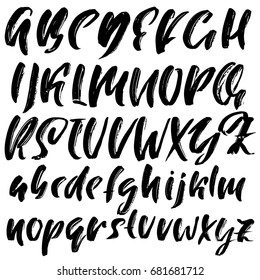 ABCDEFGH
IJKLMNOPQ
RSTUVWXYZ
abcdefghijklm
nopqrstuvwxyz
shutterstock.com · 681681712